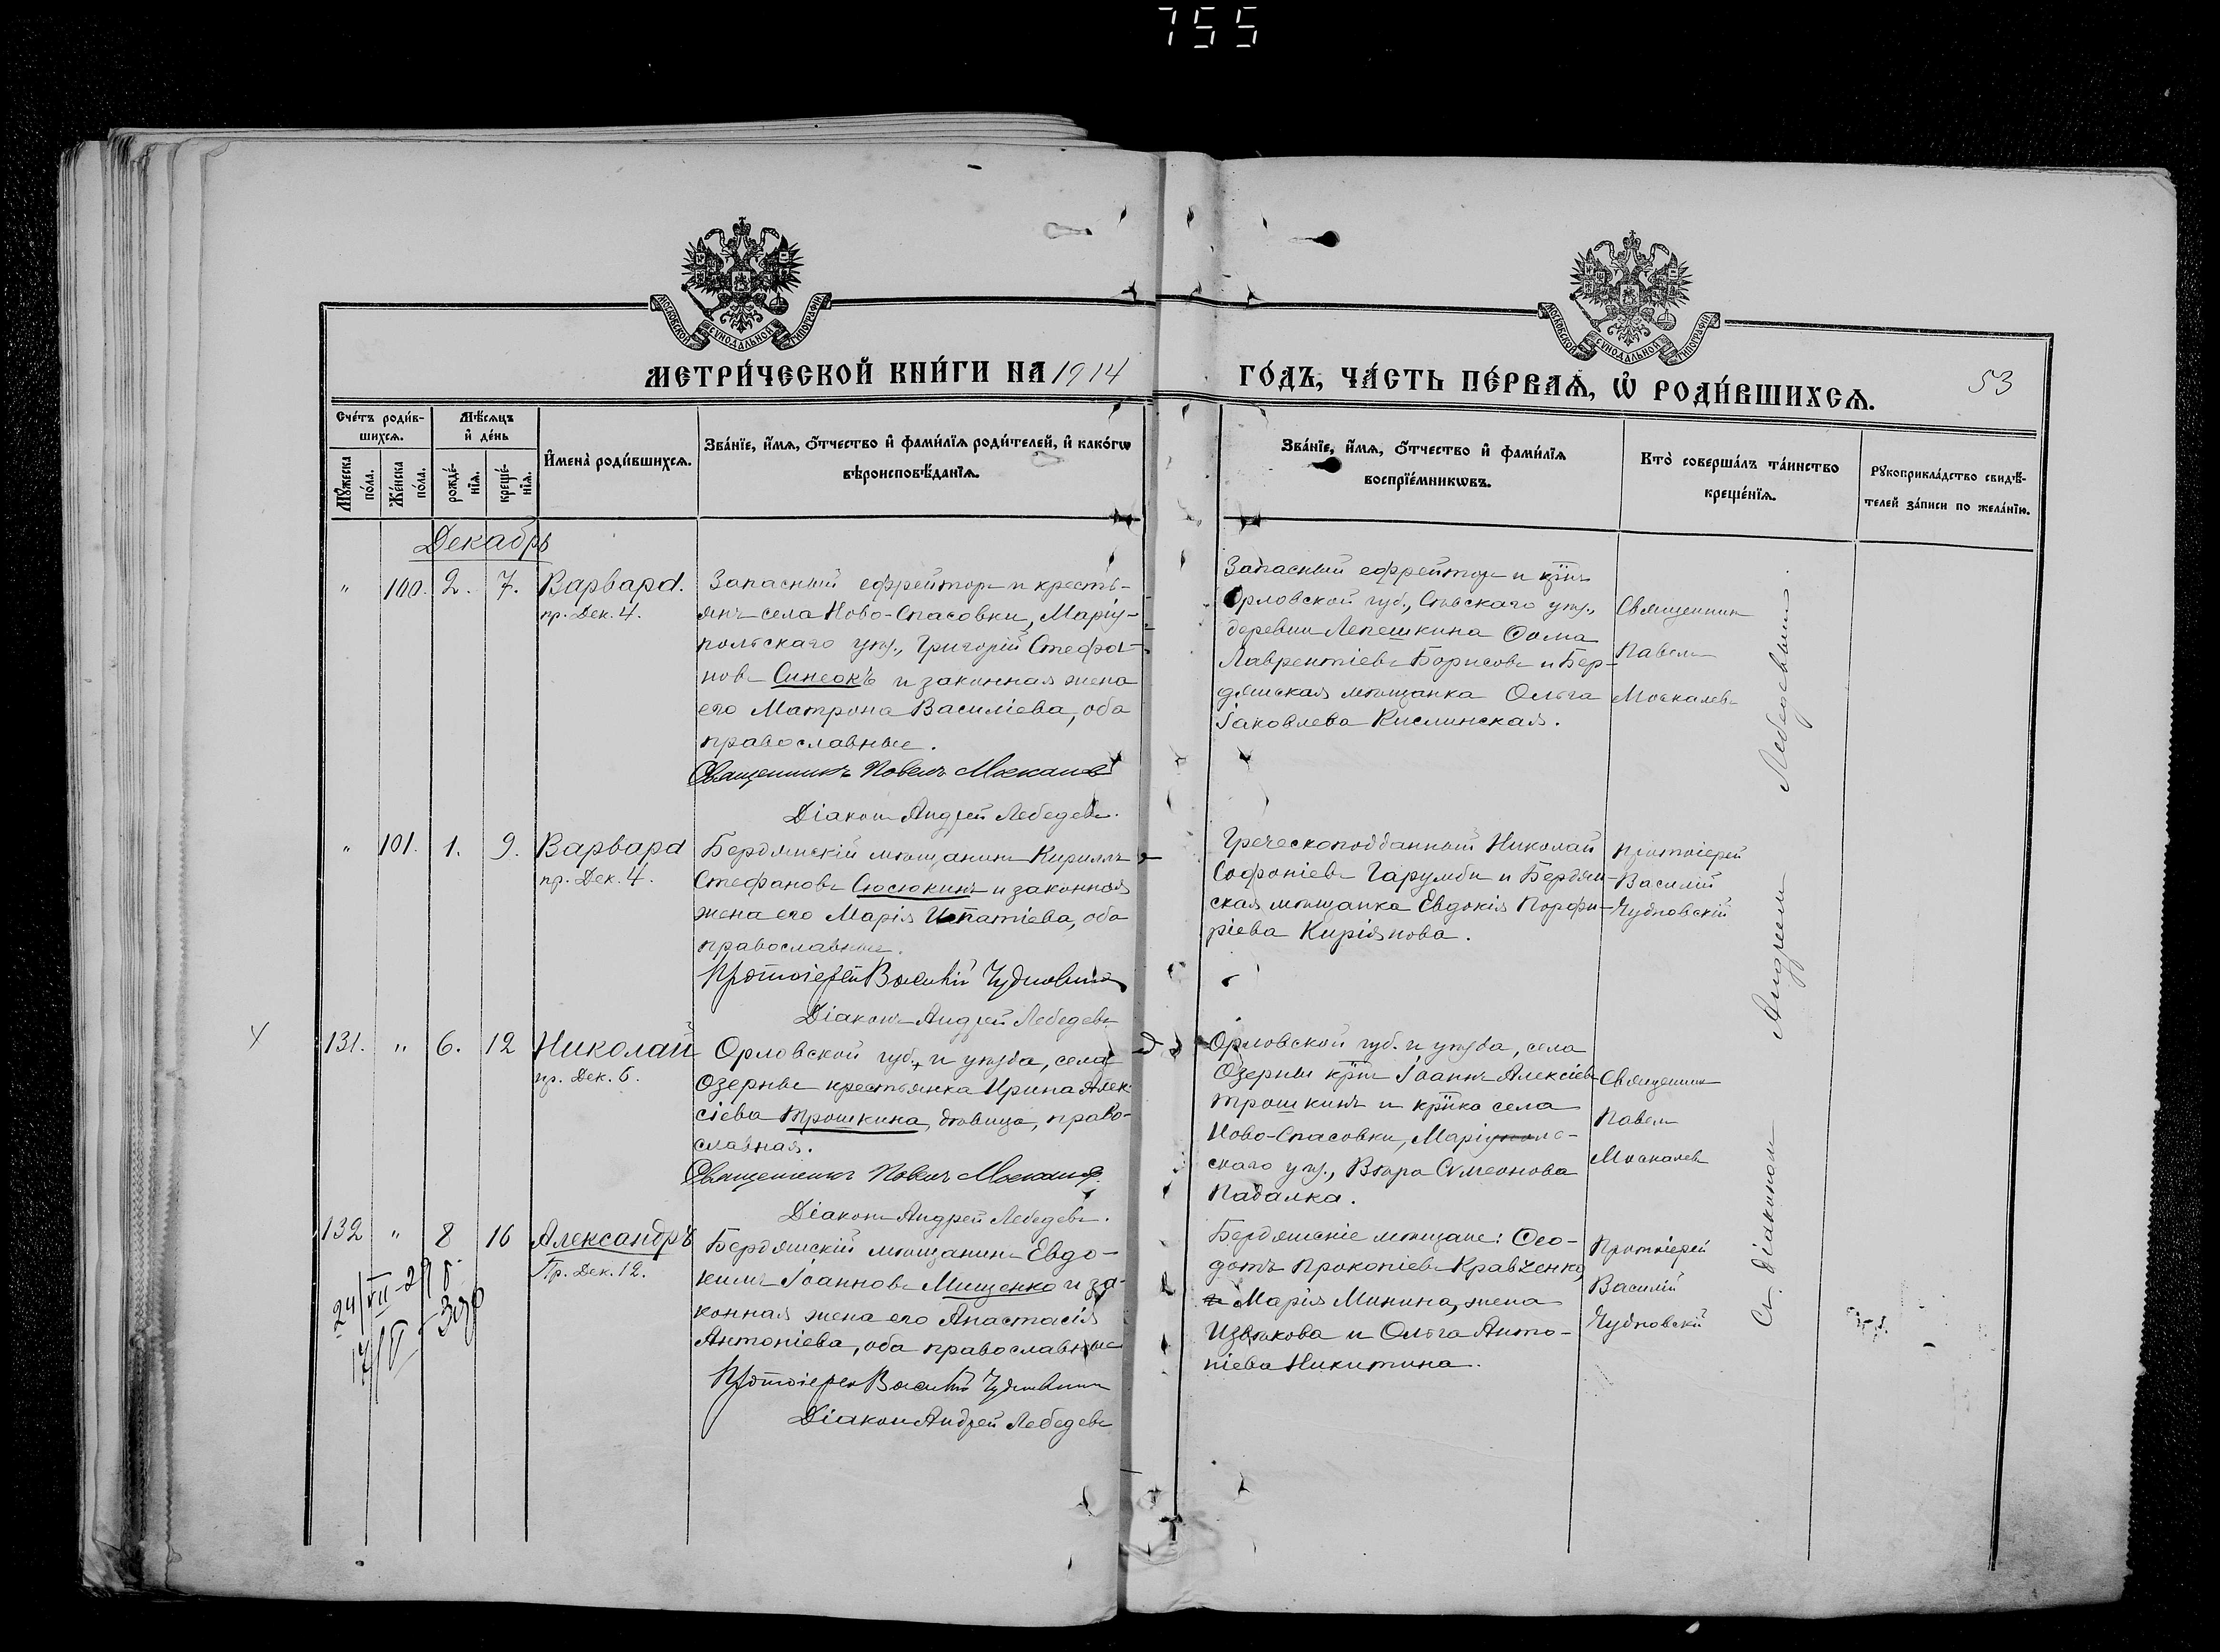 755
МОСКОВСКОЙ СѴНОДАЛЬНОЙ ТИПОГРАФІИ
МОСКОВСКОЙ СѴНОДАЛЬНОЙ ТИПОГРАФІИ
МЕТРИ́ЧЕСКОЙ КНИ́ГИ НА 1914
ГО́ДЪ, ЧА́СТЬ ПЕ́РВАѦ, Ѡ҆ РОДИ́ВШИХСѦ.
53
Сче́тъ роди́в-
шихсѧ.
Мꙋ́жеска по́ла.
Же́нска по́ла.
Мѣ́сѧцъ
и҆ де́нь
рожде́-
нїѧ.
креще́-
нїѧ.
И҆мена̀ роди́вшихсѧ.
Зва́нїе, и҆́мѧ, ѻ҆́тчество и҆ фами́лїѧ роди́телей, и҆ како́гѡ
вѣроисповѣ́данїѧ.
Зва́нїе, и҆́мѧ, ѻ҆́тчество и҆ фами́лїѧ
воспрїе́мникѡвъ.
Кто̀ соверша́лъ та́инство
креще́нїѧ.
Рꙋкоприкла́дство свидѣ́-
телей за́писи по жела́нїю.
Декабрь
" 100. 2. 7. Варвара.
пр. Дек. 4.
Запасный ефрейторъ и кресть-
янъ села Ново-Спасовки, Маріу-
польскаго уѣз., Григорій Стефа-
новъ Синеокъ и законная жена
его Матрона Василіева, оба
православные.
Священникъ Павелъ Москалевъ
Діаконъ Андрей Лебедевъ.
Запасный ефрейторъ и кр̅нъ
Орловской губ., Сѣвскаго уѣз.,
деревни Лепешкина Ѳома
Лаврентіевъ Борисовъ и Бер-
дянская мѣщанка Ольга
Іаковлева Кислинская.
Священникъ
Павелъ
Москалевъ
" 101. 1. 9. Варвара
пр. Дек. 4.
Бердянскій мѣщанинъ Кириллъ
Стефановъ Сюсюкинъ и законная
жена его Марія Ипатіева, оба
православные.
Протоіерей Василій Чудновскій
Діаконъ Андрей Лебедевъ
Греческоподданный Николай
Софоніевъ Гарумби и Бердян-
ская мѣщанка Евдокія Порфи-
ріева Киріянова.
Протоіерей
Василій
Чудновскій
131. " 6. 12 Николай
пр. Дек. 6.
Орловской губ. и уѣзда, села
Озерны крестьянка Ирина Алек-
сіева Трошкина, дѣвица, право-
славная.
Священникъ Павелъ Москалевъ.
Діаконъ Андрей Лебедевъ.
Орловской губ. и уѣзда, села
Озерны кр̅нъ Іоаннъ Алексіевъ
Трошкинъ и кр̅нка села
Ново-Спасовки, Маріупольс-
скаго уѣз., Вѣра Сѵмеонова
Падалка.
Священникъ
Павелъ
Москалевъ
132 " 8 16 Александръ
Пр. Дек. 12.
Бердянскій мѣщанинъ Евдо-
кимъ Іоанновъ Мищенко и за-
конная жена его Анастасія
Антоніева, оба православные
Протоіерей Василій Чудновскій
Діаконъ Андрей Лебедевъ
Бердянскіе мѣщане: Ѳео-
дотъ Прокопіевъ Кравченко,
и Марія Минина, жена
Извѣкова и Ольга Анто-
ніева Никитина.
Протоіерей
Василій
Чудновскій
Съ діакономъ Андреемъ Лебедевымъ.